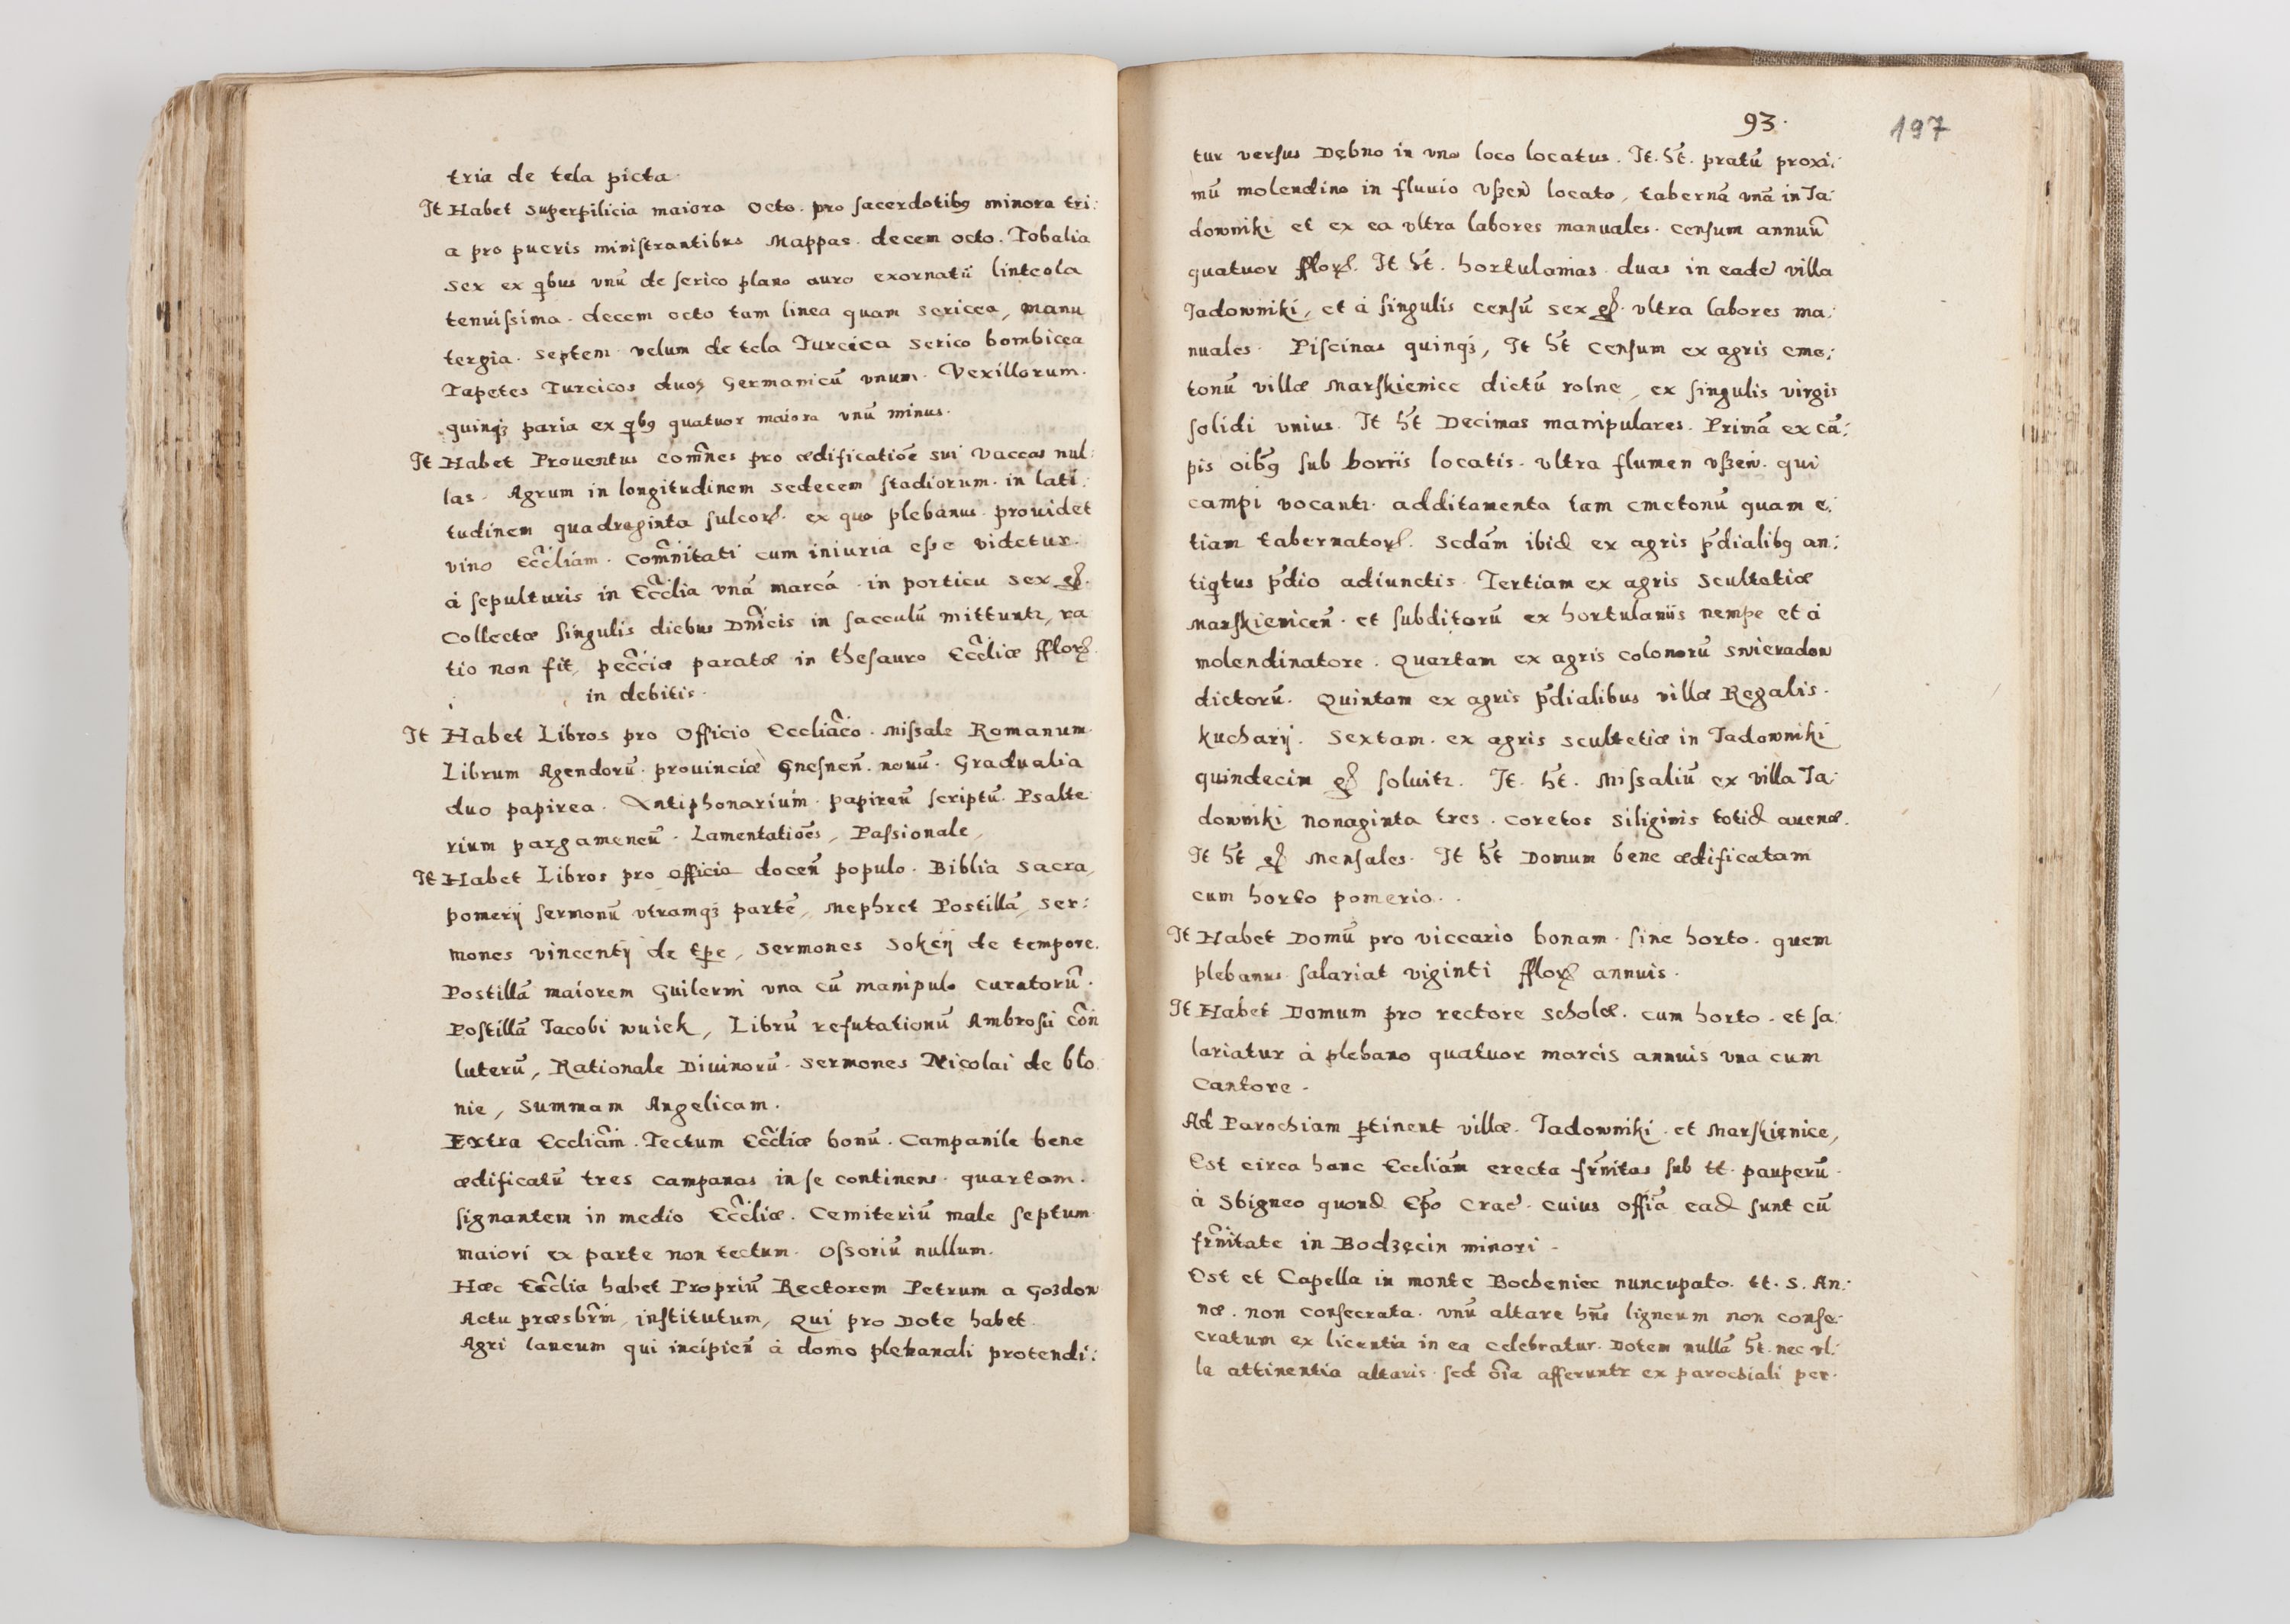 tria de tela picta.
It Habet superpilicia maiora octo. pro sacerdotibꝰ minora tri:
a pro pueris ministrantibus Mappas. decem octo. Tobalia
sex ex qbus vnũ de serico plano auro exornatũ linteola
tenuissima. decem octo tam linea quam sericea, manu
tergia. septem velum de tela Turcica serico bombicea
Tapetes Turcicos duos Germanicũ vnum. Vexillorum.
quinqꝫ paria ex qbꝰ quatuor maiora vnũ minus.
It Habet Prouentus com̃nes pro ædificatiõe sui vaccas nul:
las. Agrum in longitudinem sedecem stadiorum. in lati:
tudinem quadraginta sulcoꝝ. ex quo plebanus. prouidet
vino Eccl̃iam. Com̃nitati cum iniuria esse videtur.
à sepulturis in Eccl̃ia vnã marcã in porticu sex gꝭ.
Collectæ singulis diebus Dñicis in sacculũ mittuntꝛ, ra
tio non fit, pecc̃iæ paratæ in thesauro Eccl̃iæ ffloꝝ.
in debitis.
It Habet Libros pro Officio Eccliãco. Missale Romanum
Librum Agendorũ. prouinciæ Gnesneñ. nouũ. Gradualia
duo papirea. Antiphonarium. papireũ scriptũ. Psalte
rium pargameneũ. Lamentatiões, Passionale,
It Habet Libros pro officio doceñ populo. Biblia Sacra,
pomerij sermonũ vtramqꝫ partẽ, Mephret Postillã, Ser:
mones vincentij de tp̃e, Sermones Sokeij de tempore.
Postillã maiorem Guilermi vna cũ manipulo curatorũ.
Postillã Jacobi wuiek, Librũ refutationũ Ambrosii cõn
luterũ, Rationale Diuinorũ. Sermones Nicolai de blo
nie, Summam Angelicam.
Extra Eccliãm. Tectum Eccl̃iæ bonũ. Campanile bene
ædificatũ tres campanas in se continens. quartam.
signantem in medio Eccl̃iæ. Cemiteriũ male septum
maiori ex parte non tectum. Ossoriũ nullum.
Hæc Eccl̃ia habet Propriũ Rectorem Petrum a Gozdow
Actu præsbr̃m, institutum, Qui pro Dote habet.
Agri laneum qui incipieñ à domo plebanali protendi:
93. 197
tur versus Dębno in vno loco locatus. It. h̃t. pratũ proxi:
mũ molendino in fluuio Vszew locato, tabernã vnã in Ja:
downiki et ex ea vltra labores manuales. censum annuũ
quatuor ffloꝝ. It h̃t. hortulanias. duas in eadẽ villa
Jadowniki, et à singulis censũ sex gꝭ. vltra labores ma:
nuales. Piscinas quinqꝫ, It h̃t censum ex agris cme:
tonũ villæ Marskienice dictũ rolne, ex singulis virgis
solidi vnius. It h̃t Decimas manipulares. Primã ex cã:
pis oibꝰ sub borriis locatis. vltra flumen vszew. qui
campi vocantꝛ. additamenta tam cmetonũ quam e:
tiam tabernatoꝝ. Scdãm ibid ex agris p̃dialibꝰ an:
tiqtus p̃dio adiunctis. Tertiam ex agris Scultetiæ
Marskieniceñ. et subditorũ ex hortulaniis nempe et à
molendinatore. Quartam ex agris colonorũ Swieradow
dictorũ. Quintam ex agris p̃dialibus villæ Regalis.
kucharij. Sextam. ex agris scultetiæ in Jadowniki
quindecim gꝭ soluitꝛ. It. h̃t. Missaliũ ex villa Ja:
downiki nonaginta tres. coretos siliginis totid auenæ.
It h̃t gꝭ Mensales. It h̃t Domum bene ædificatam
cum horto pomerio..
It Habet Domũ pro viccario bonam. sine horto. quem
plebanus salariat viginti ffloꝝ annuis.
It Habet Domum pro rectore scholæ. cum horto. et sa:
lariatur à plebano quatuor marcis annuis vna cum
Cantore.
Ad Parochiam ꝑtinent villæ. Jadowniki. et Marskięnice,
Est circa hanc Eccliãm erecta fr̃nitas sub tt. pauperũ.
à Sbigneo quond Ep̃o Crac̃. cuius offĩa ead sunt cũ
fr̃nitate in Bodzęcin minori.
Est et Capella in monte Bocheniec nuncupato. tt. S. An:
næ. non consecrata. vnũ altare hñs ligneum non conse:
cratum ex licentia in ea celebratur. Dotem nullã h̃t. nec vl:
la attinentia altaris. sed õia afferuntr ex parochiali per.